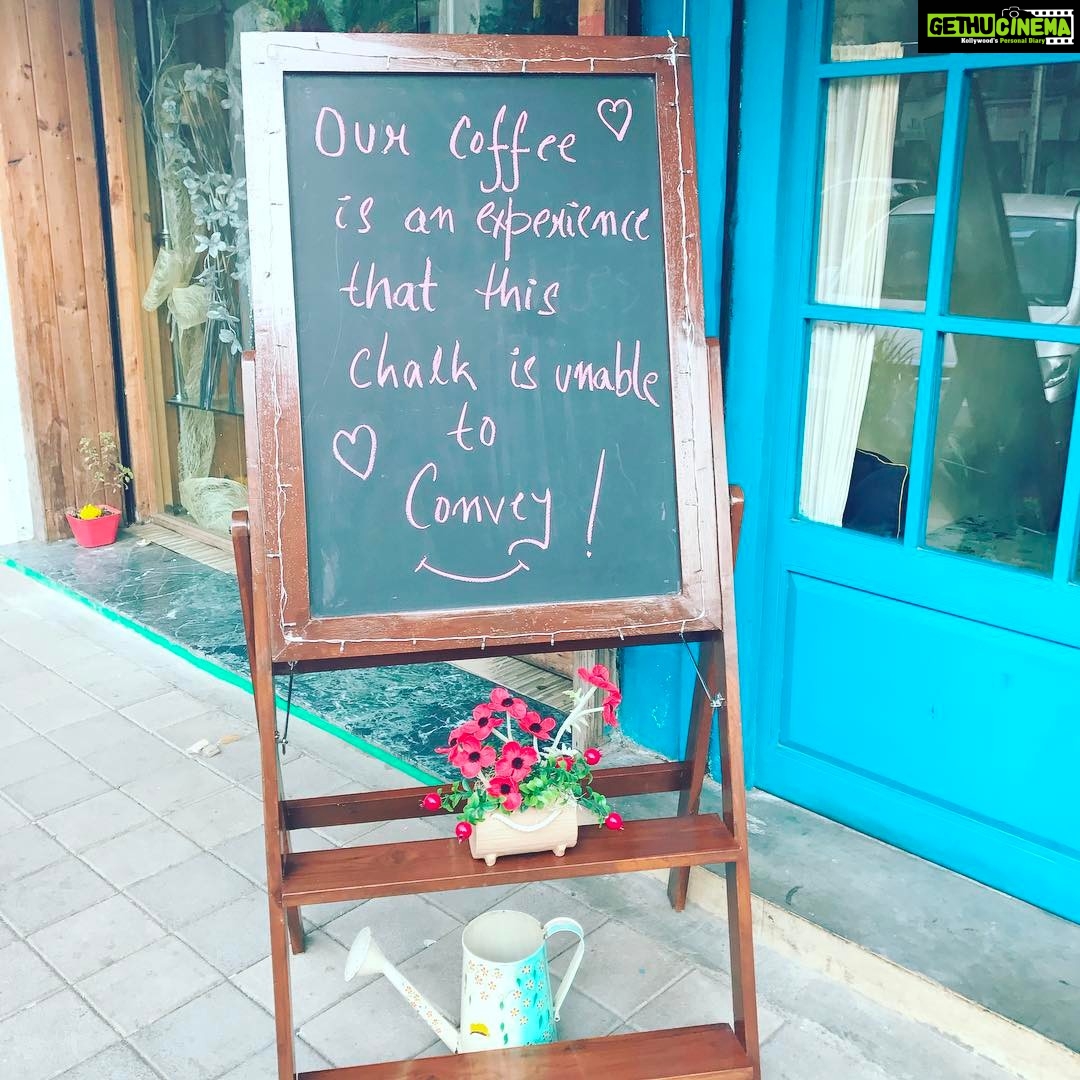 GETHUCINEMA
Kollywood's Personal Diary
Our coffee
is an experience
that this
chalk is unable
to
Convey!